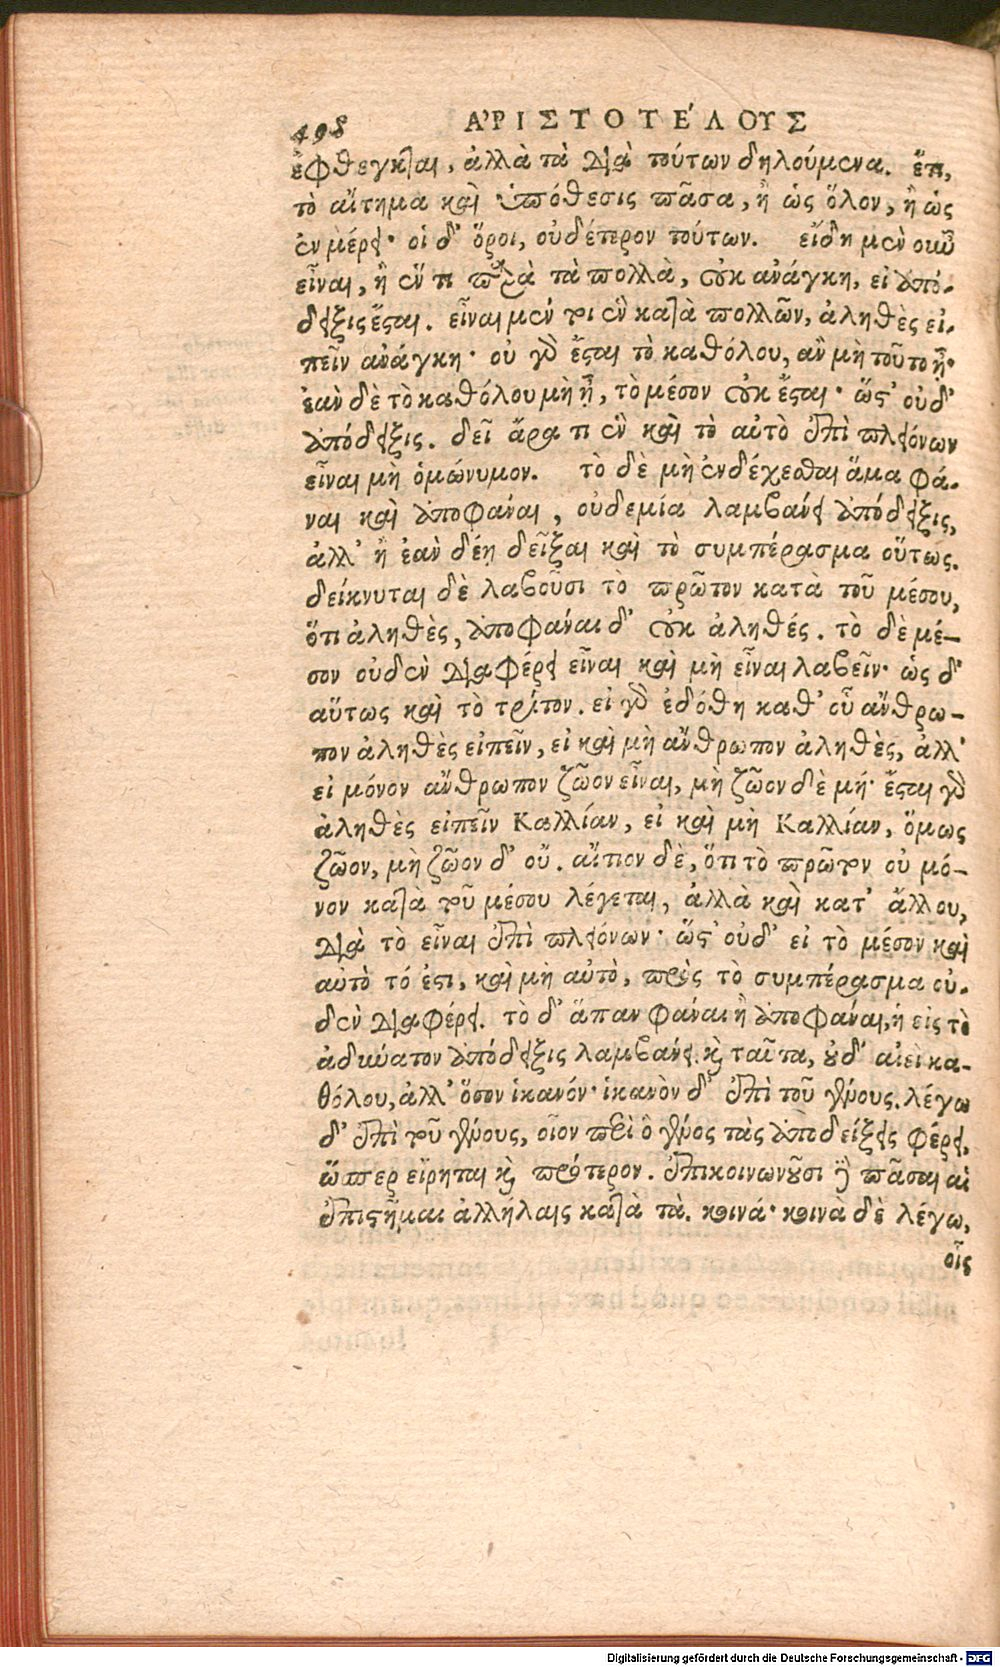 498 ἈΡΙΣΤΟΤΈΛΟΥΣ
ἐφθεγκται, ἀλλὰ τὰ διὰ τούτων δηλούμενα. ἔτι,
τὸ αἴτημα καὶ ὑπόθεσις πᾶσα, ἢ ὡς ὅλον, ἢ ὡς
ἐν μέρει· οἱ δ' ὅροι, οὐδέτερον τούτων. εἴδη μὲν οὖν
εἶναι, ἢ ἕν τι παρὰ τὰ πολλὰ, οὐκ ἀνάγκη, εἰ ἀπό-
δειξις ἔσται. εἶναι μέν τοι ἓν κατὰ πολλῶν, ἀληθὲς εἰ-
πεῖν ἀνάγκη· οὐ γὰρ ἔσται τὸ καθόλου, ἂν μὴ τοῦτο ᾖ·
ἐὰν δὲ τὸ καθόλου μὴ ᾖ, τὸ μέσον οὐκ ἔσται· ὥστ' οὐδ'
ἀπόδειξις. δεῖ ἄρα τι ἓν καὶ τὸ αὐτὸ ἐπὶ πλειόνων
εἶναι μὴ ὁμώνυμον. τὸ δὲ μὴ ἐνδέχεσθαι ἅμα φά-
ναι καὶ ἀποφάναι, οὐδεμία λαμβάνει ἀπόδειξις,
ἀλλ' ἢ ἐὰν δέῃ δεῖξαι καὶ τὸ συμπέρασμα οὕτως.
δείκνυται δὲ λαβοῦσι τὸ πρῶτον κατὰ τοῦ μέσου,
ὅτι ἀληθὲς, ἀποφάναι δ' οὐκ ἀληθές. τὸ δὲ μέ-
σον οὐδὲν διαφέρει εἶναι καὶ μὴ εἶναι λαβεῖν· ὡς δ'
αὕτως καὶ τὸ τρίτον. εἰ γὰρ ἐδόθη καθ' οὗ ἄνθρω-
πον ἀληθὲς εἰπεῖν, εἰ καὶ μὴ ἄνθρωπον ἀληθὲς, ἀλλ'
εἰ μόνον ἄνθρωπον ζῶον εἶναι, μὴ ζῶον δὲ μή· ἔσται γὰρ
ἀληθὲς εἰπεῖν Καλλίαν, εἰ καὶ μὴ Καλλίαν, ὅμως
ζῶον, μὴ ζῶον δ' οὔ. αἴτιον δὲ, ὅτι τὸ πρῶτον οὐ μό-
νον κατὰ τοῦ μέσου λέγεται, ἀλλὰ καὶ κατ' ἄλλου,
διὰ τὸ εἶναι ἐπὶ πλειόνων· ὥστ' οὐδ' εἰ τὸ μέσον καὶ
αὐτὸ τό ἐστι, καὶ μὴ αὐτὸ, πρὸς τὸ συμπέρασμα οὐ-
δὲν διαφέρει. τὸ δ' ἅπαν φάναι ἢ ἀποφάναι, ἡ εἰς τὸ
ἀδύνατον ἀπόδειξις λαμβάνει. καὶ ταῦτα, οὐδ' αἰεὶ κα-
θόλου, ἀλλ' ὅσον ἱκανόν· ἱκανὸν δ' ἐπὶ τοῦ γένους. λέγω
δ' ἐπὶ τοῦ γένους, οἷον περὶ ὃ γένος τὰς ἀποδείξεις φέρει,
ὥσπερ εἴρηται καὶ πρότερον. ἐπικοινωνοῦσι δὲ πᾶσαι αἱ
ἐπιστῆμαι ἀλλήλαις κατὰ τὰ. κοινά· κοινὰ δὲ λέγω,
οἷς
Digitalisierung gefördert durch die Deutsche Forschungsgemeinschaft - DFG